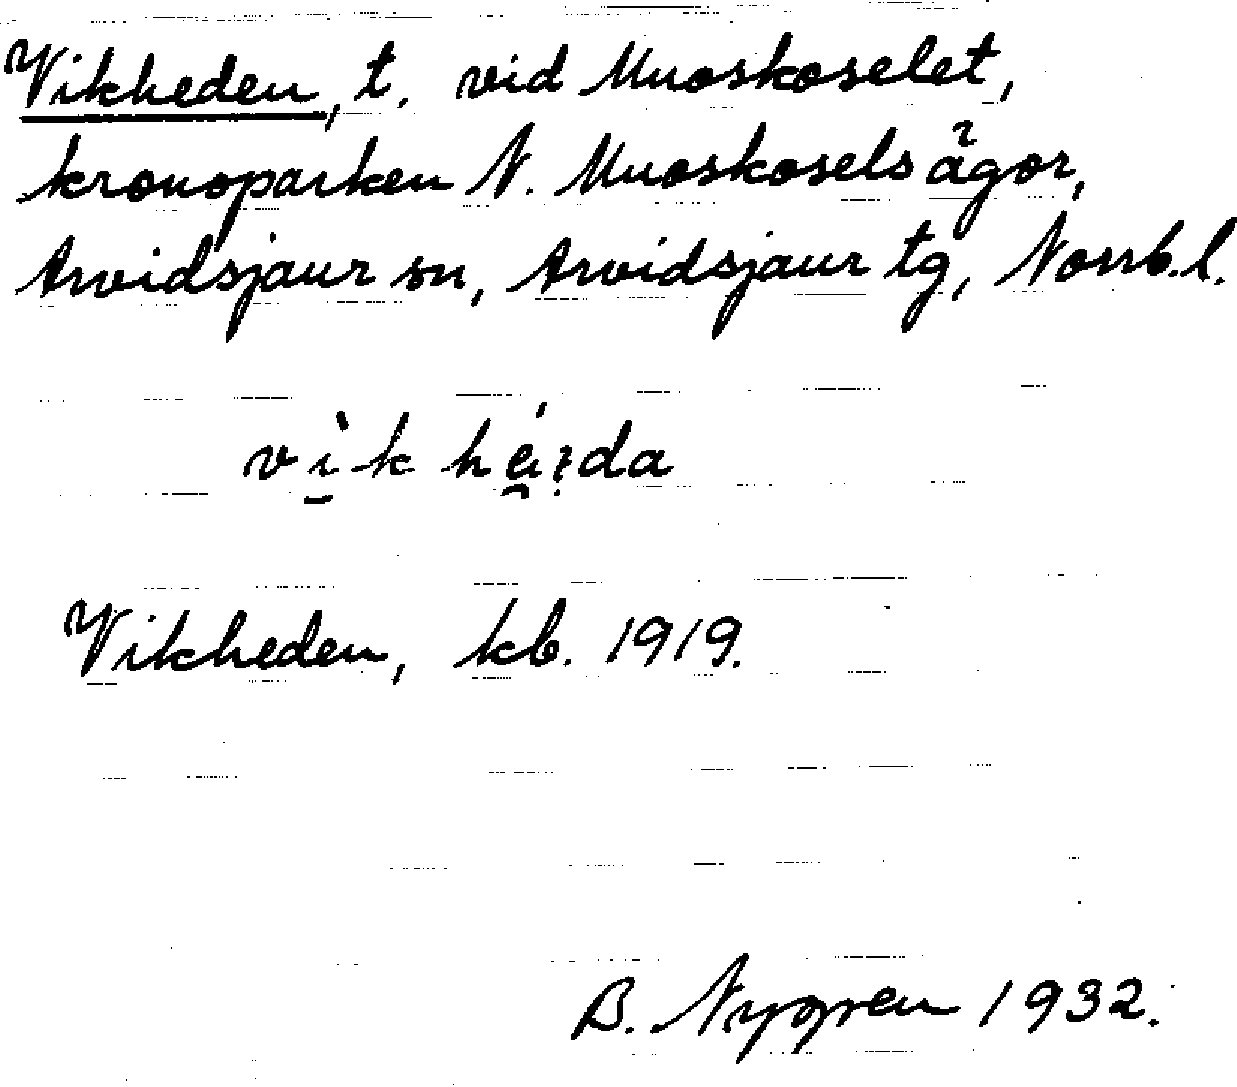 Vikheden, t. vid Muoskoselet,
kronoparken N. Muoskosels ägor,
Arvidsjaur sn, Arvidsjaur tg, Norrb.l.
Vikheden, kb. 1919.
B. Nygren 1932.